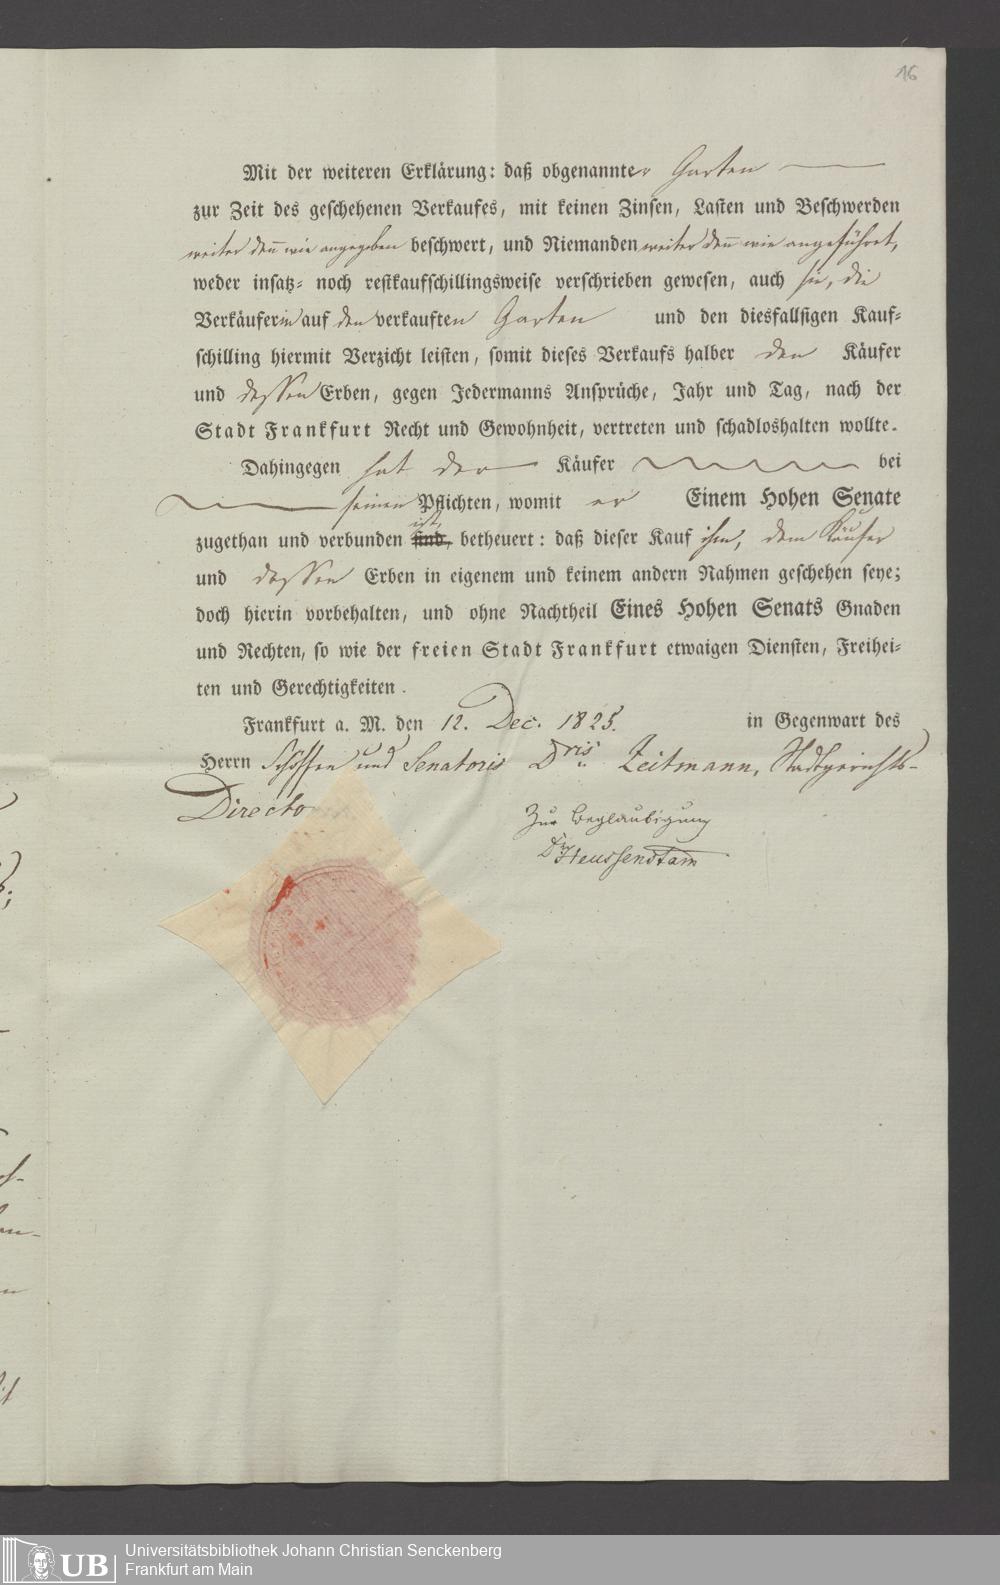 16
Mit der weiteren Erklärung: daß obgenannter Garten
zur Zeit des geschehenen Verkaufes, mit keinen Zinsen, Lasten und Beschwerden
weiter deñ wie angegeben beschwert, und Niemanden weiter deñ wie angeführt,
weder insatz- noch restkaufschillingsweise verschrieben gewesen, auch sie, die
Verkäuferin auf den verkauften Garten und den diesfallsigen Kauf-
schilling hiermit Verzicht leisten, somit dieses Verkaufs halber den Käufer
und dessen Erben, gegen Jedermanns Ansprüche, Jahr und Tag, nach der
Stadt Frankfurt Recht und Gewohnheit, vertreten und schadloshalten wollte.
Dahingegen hat der Käufer bei
seinen Pflichten, womit er Einem Hohen Senate
zugethan und verbunden sind, ist, betheuert: daß dieser Kauf ihm, dem Käufer
und dessen Erben in eigenem und keinem andern Nahmen geschehen seye;
doch hierin vorbehalten, und ohne Nachtheil Eines Hohen Senats Gnaden
und Rechten, so wie der freien Stadt Frankfurt etwaigen Diensten, Freihei-
ten und Gerechtigkeiten.
Frankfurt a. M. den 12. Dec. 1825. in Gegenwart des
Herrn Schöffen und Senatoris Dris Zeitmann, Stadtgerichts-
Directo
Zur Beglaubigung
Dr Heussenstam
Universitätsbibliothek Johann Christian Senckenberg
Frankfurt am Main
UB